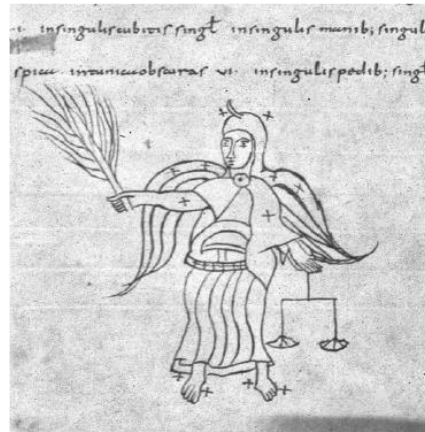 ·i· insingulis cubitis singł insingulis manib; singul
spica· intunica obscuras vi· insingulis pedib; singł